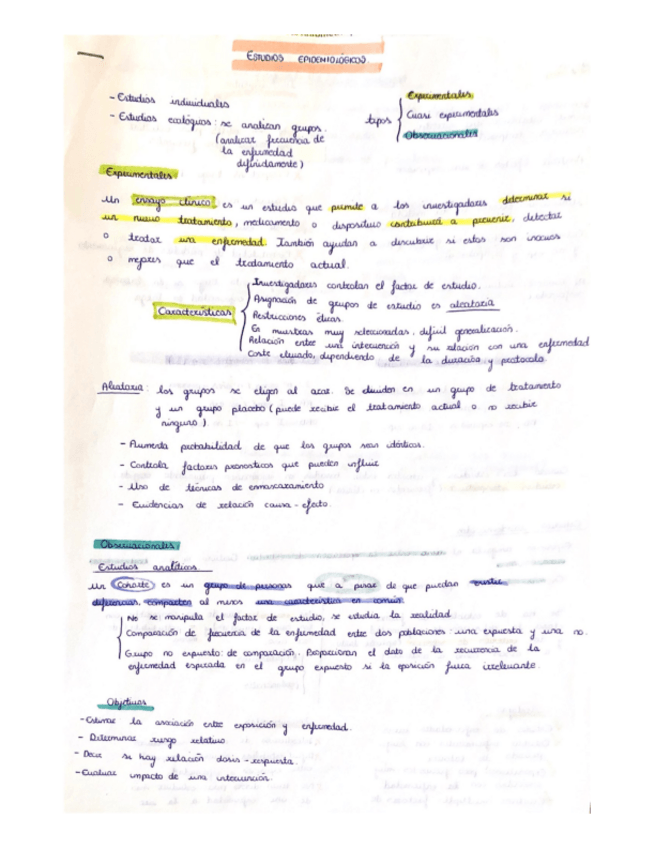 ESTUDIOS EPIDEMIOLÓGICOS
- Estudios individuales
- Estudios ecológicos: se analizan grupos.
(analizar frecuencia de
la enfermedad
definidamente)
tipos
Experimentales
Cuasi experimentales
Observacionales
Experimentales:
Un ensayo clínico es un estudio que permite a los investigadores determinar si
un nuevo tratamiento, medicamento o dispositivo contribuirá a prevenir, detectar
o tratar una enfermedad. También ayudan a descubrir si estos son inocuos
o mejores que el tratamiento actual.
Características
Investigadores controlan el factor de estudio.
Asignación de grupos de estudio es aleatoria
Restricciones éticas.
Es muestras muy seleccionadas, difícil generalización.
Relación entre una intervención y su relación con una enfermedad
Coste elevado, dependiendo de la duración y protocolo.
Aleatoria: los grupos se eligen al azar. Se dividen en un grupo de tratamiento
y un grupo placebo (puede recibir el tratamiento actual o no recibir
ninguno)
- Aumenta probabilidad de que los grupos sean idénticos.
- Controla factores pronósticos que pueden influir
- Uso de técnicas de enmascaramiento
- Evidencias de relación causa-efecto.
Observacionales:
Estudios analíticos.
Un Cohorte es un grupo de personas que a pesar de que puedan existir
diferencias, comparten al menos una característica en común.
No se manipula el factor de estudio, se estudia la realidad
Comparación de frecuencia de la enfermedad entre dos poblaciones: una expuesta y una no.
Grupo no expuesto: de comparación. Proporcionan el dato de la recurrencia de la
enfermedad esperada en el grupo expuesto si la exposición fuera irrelevante.
Objetivos
- Estimar la asociación entre exposición y enfermedad.
- Determinar riesgo relativo.
- Decir si hay relación dosis-respuesta.
- Evaluar impacto de una intervención.